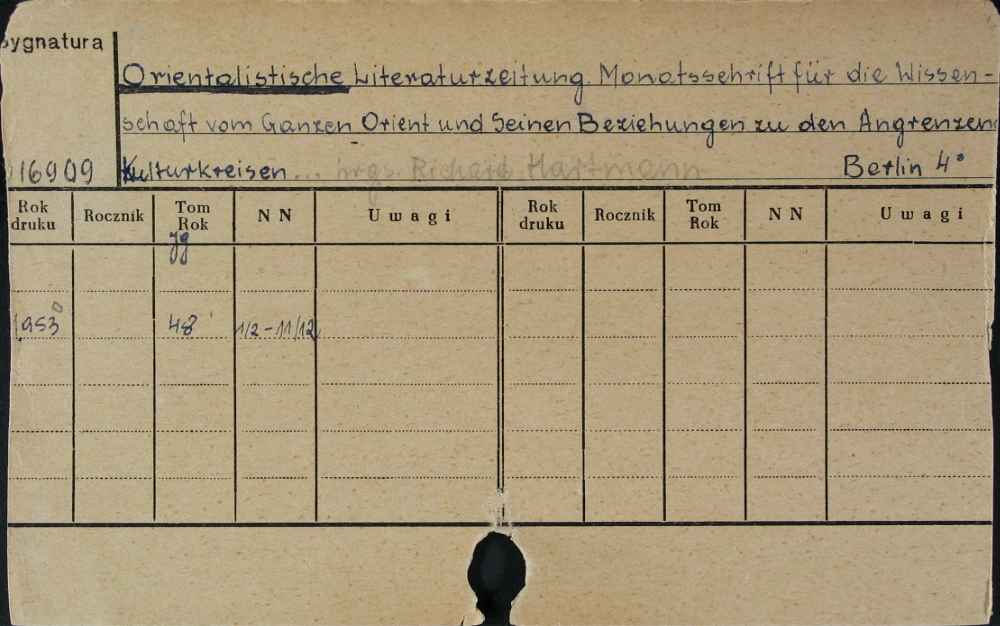 Sygnatura
Orientalistische Literaturzeitung. Monatsschrift für die Wissen-
schaft vom Ganzen Orient und Seinen Beziehungen zu den Angrenzen
16909 Kulturkreisen... hrgs. Richard Hartmann Berlin 4°
Rok druku Rocznik Tom Rok NN Uwagi Rok druku Rocznik Tom Rok NN Uwagi
Jg
1953 48 1/2-11/12